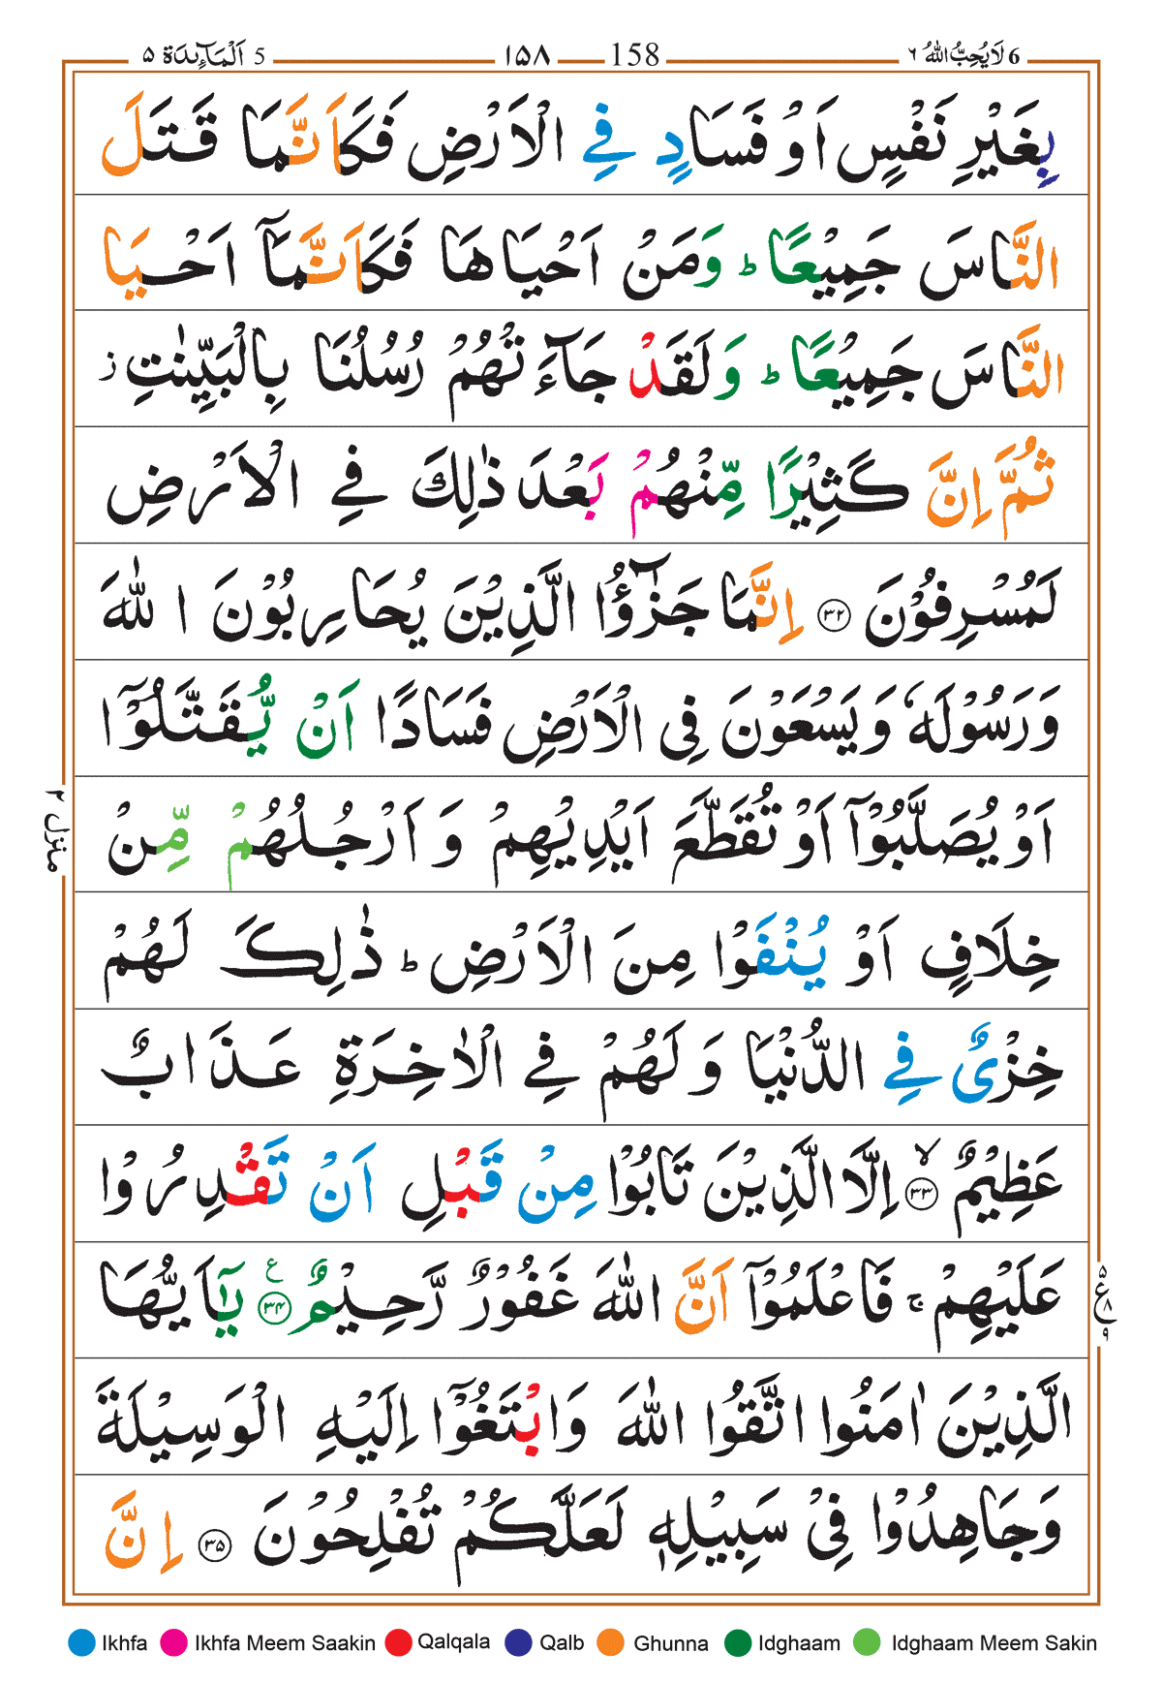 6 لَا يُحِبُّ اللهُ ٦ 158 ١٥٨ 5 اَلْمَآئِدَة ٥
بِغَيْرِ نَفْسٍ اَوْ فَسَادٍ فِي الْاَرْضِ فَكَاَنَّمَا قَتَلَ
النَّاسَ جَمِيْعًا ؕ وَمَنْ اَحْيَاهَا فَكَاَنَّمَآ اَحْيَا
النَّاسَ جَمِيْعًا ؕ وَلَقَدْ جَآءَتْهُمْ رُسُلُنَا بِالْبَيِّنٰتِ ز
ثُمَّ اِنَّ كَثِيْرًا مِّنْهُمْ بَعْدَ ذٰلِكَ فِي الْاَرْضِ
لَمُسْرِفُوْنَ ۝٣٢ اِنَّمَا جَزٰٓؤُا الَّذِيْنَ يُحَارِبُوْنَ اللهَ
وَرَسُوْلَهٗ وَيَسْعَوْنَ فِى الْاَرْضِ فَسَادًا اَنْ يُّقَتَّلُوْٓا
اَوْ يُصَلَّبُوْٓا اَوْ تُقَطَّعَ اَيْدِيْهِمْ وَاَرْجُلُهُمْ مِّنْ
خِلَافٍ اَوْ يُنْفَوْا مِنَ الْاَرْضِ ؕ ذٰلِكَ لَهُمْ
خِزْىٌ فِي الدُّنْيَا وَلَهُمْ فِي الْاٰخِرَةِ عَذَابٌ
عَظِيْمٌ ۝٣٣ ۙ اِلَّا الَّذِيْنَ تَابُوْا مِنْ قَبْلِ اَنْ تَقْدِرُوْا
عَلَيْهِمْ ۚ فَاعْلَمُوْٓا اَنَّ اللهَ غَفُوْرٌ رَّحِيْمٌ ۝٣٤ ع يٰٓاَيُّهَا
الَّذِيْنَ اٰمَنُوا اتَّقُوا اللهَ وَابْتَغُوْٓا اِلَيْهِ الْوَسِيْلَةَ
وَجَاهِدُوْا فِيْ سَبِيْلِهٖ لَعَلَّكُمْ تُفْلِحُوْنَ ۝٣٥ اِنَّ
منزل ٢
Ikhfa Ikhfa Meem Saakin Qalqala Qalb Ghunna Idghaam Idghaam Meem Sakin